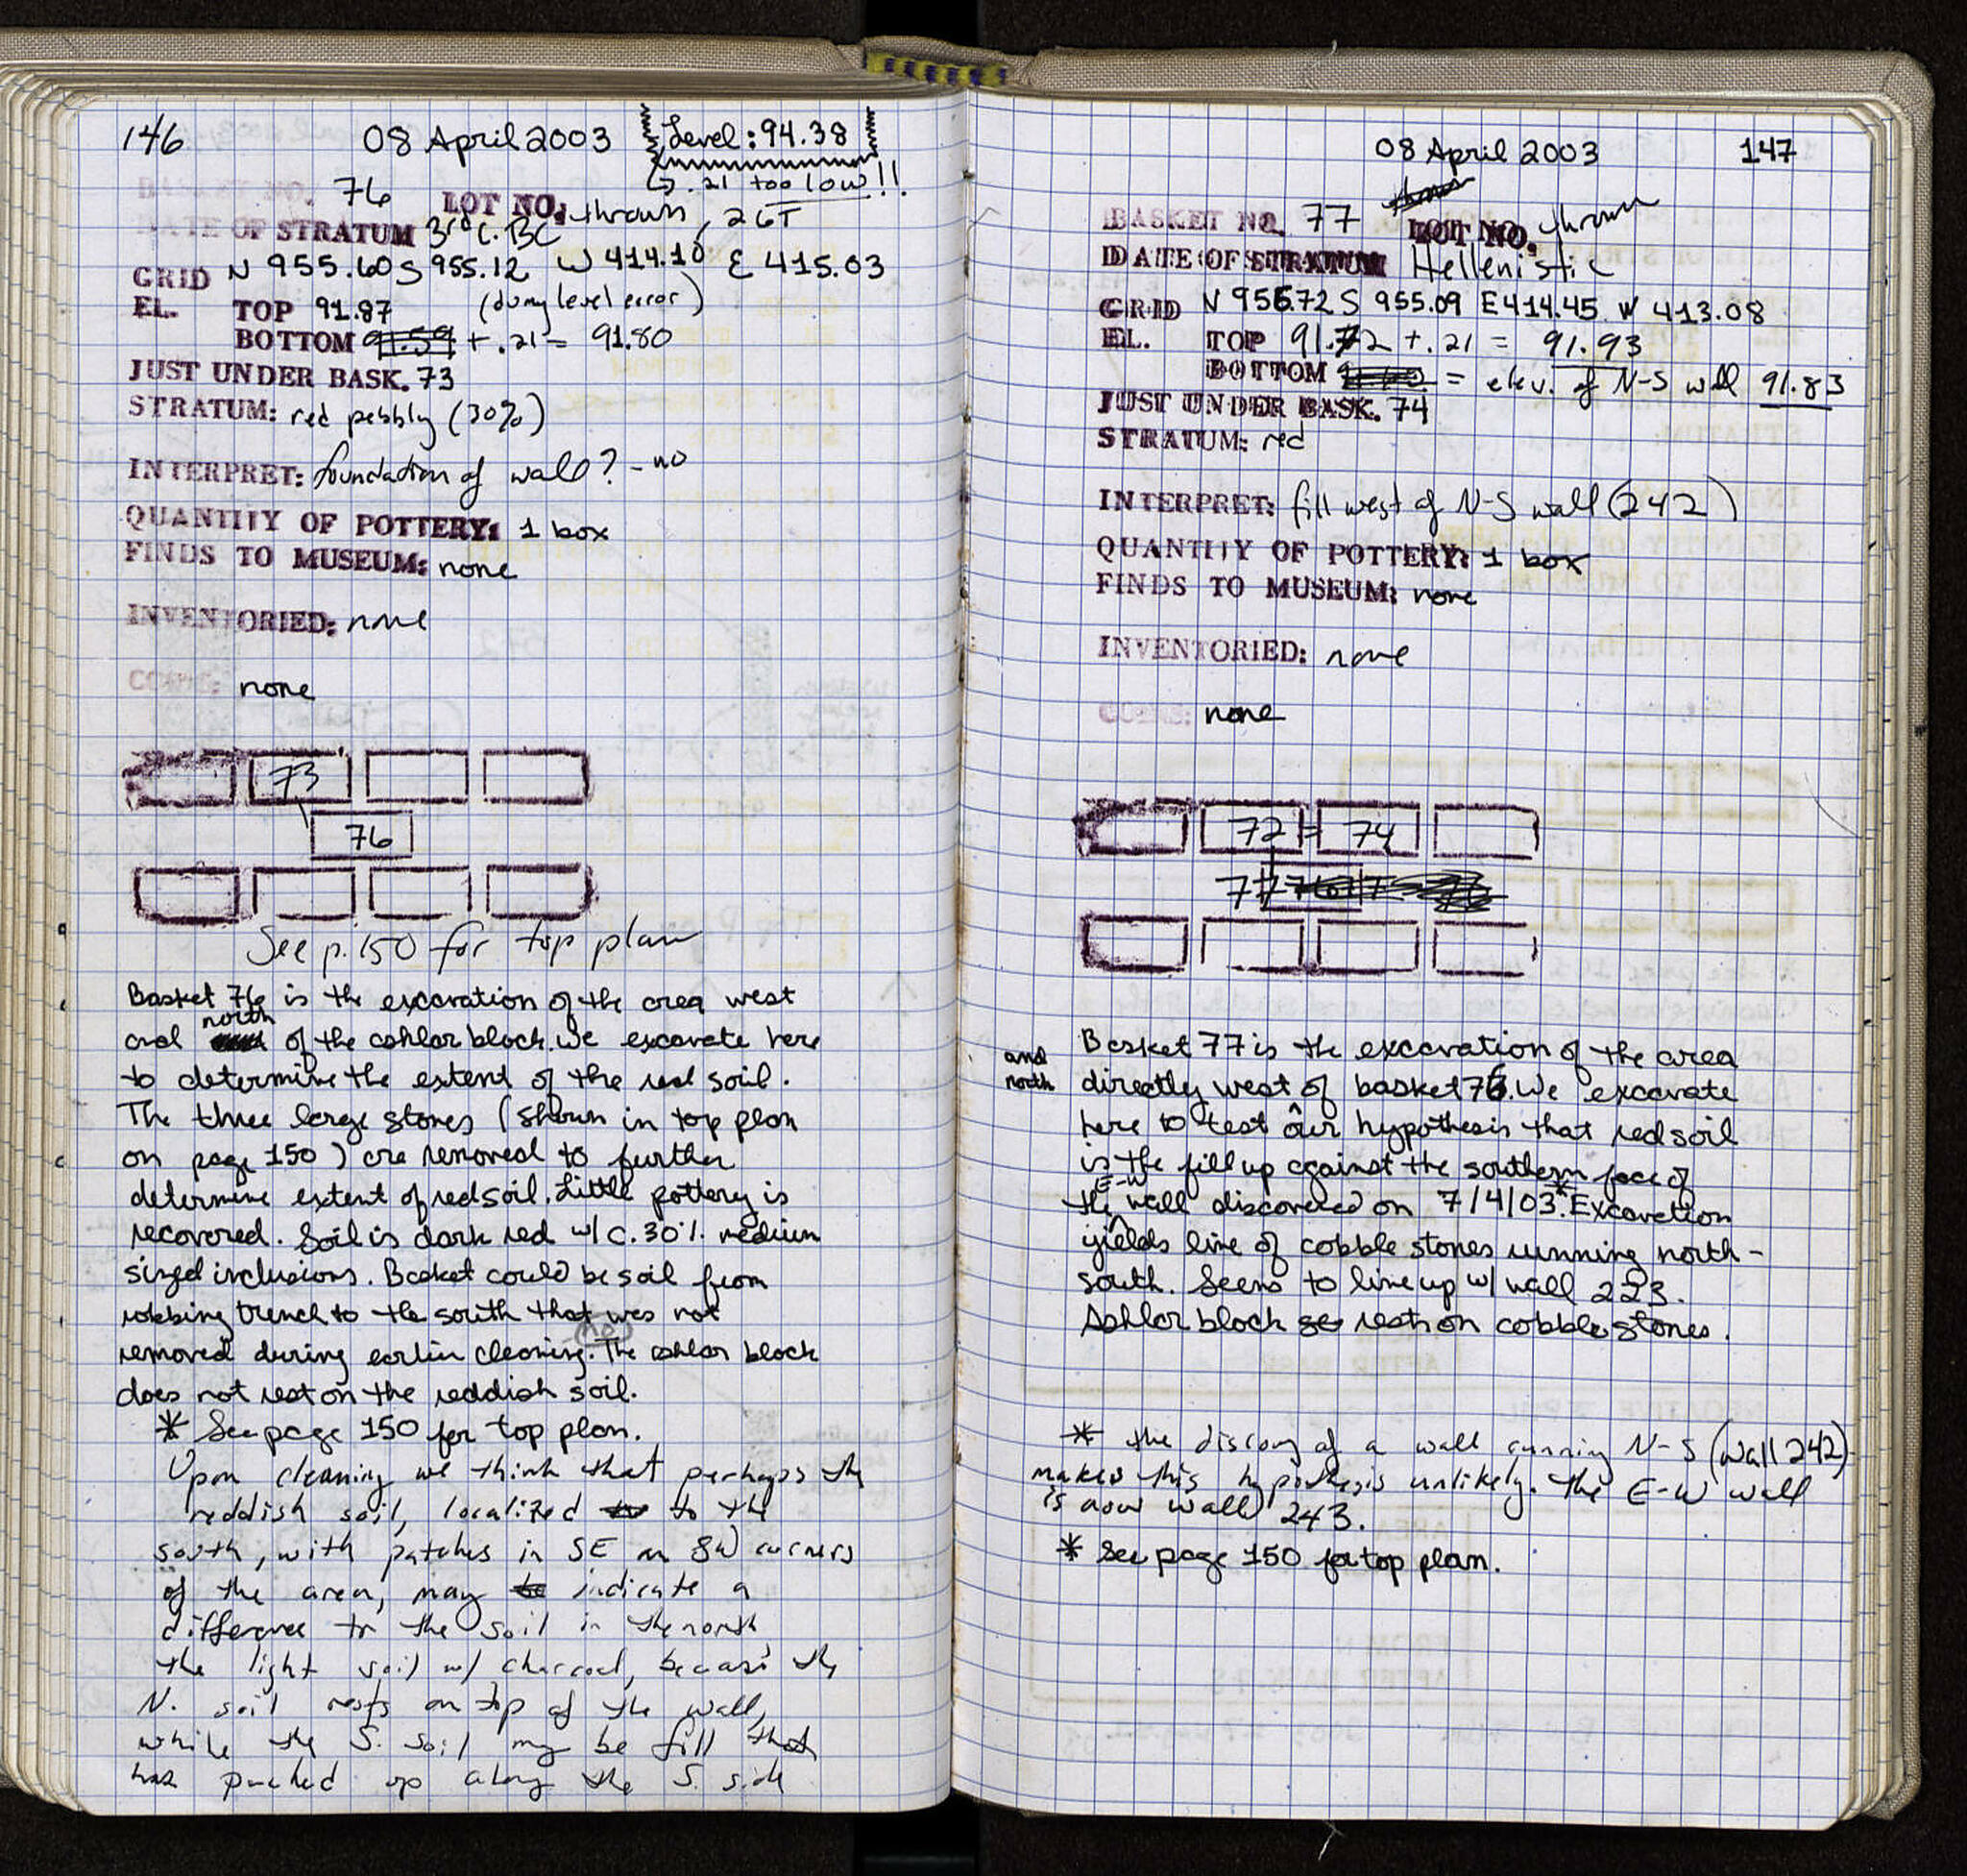 146 08 April 2003 Level: 94.38
↳ .21 too low!!
BASKET NO. 76 LOT NO. thrown, 26T
DATE OF STRATUM 3rd c. BC
GRID N 955.60 S 955.12 W 414.10 E 415.03
EL. TOP 91.87 (dumy level error)
BOTTOM 91.59 + .21 = 91.80
JUST UNDER BASK. 73
STRATUM: red pebbly (30%)
INTERPRET: foundation of wall? - no
QUANTITY OF POTTERY: 1 box
FINDS TO MUSEUM: none
INVENTORIED: none
COINS: none
73
76
See p. 150 for top plan
Basket 76 is the excavation of the area west
and north of the ashlar block. We excavate here
to determine the extent of the red soil.
The three large stones (shown in top plan
on page 150) are removed to further
determine extent of red soil. Little pottery is
recovered. Soil is dark red w/ c. 30% medium
sized inclusions. Basket could be soil from
robbing trench to the south that was not
removed during earlier cleaning. - no The ashlar block
does not rest on the reddish soil.
* See page 150 for top plan.
Upon cleaning we think that perhaps the
reddish soil, localized to the
south, with patches in SE an SW corners
of the area, may be indicate a
difference to the soil in the north
the light soil w/ charcoal, because the
N. soil rests on top of the wall,
while the S. soil may be fill that
was packed up along the S. side
08 April 2003 147
BASKET NO. 77 LOT NO. thrown
DATE OF STRATUM Hellenistic
GRID N 956.72 S 955.09 E 414.45 W 413.08
EL. TOP 91.72 + .21 = 91.93
BOTTOM = elev. of N-S wall 91.83
JUST UNDER BASK. 74
STRATUM: red
INTERPRET: fill west of N-S wall (242)
QUANTITY OF POTTERY: 1 box
FINDS TO MUSEUM: none
INVENTORIED: none
COINS: none
72 = 74
77
Basket 77 is the excavation of the area
and north directly west of basket 76. We excavate
here to test our hypothesis that red soil
is the fill up against the southern face of
the E-W wall discovered on 7/4/03.* Excavation
yields line of cobble stones running north-
south. Seems to line up w/ wall 223.
Ashlar block rest on cobble stones.
* the discovy of a wall running N-S (wall 242)
makes this hypothesis unlikely. The E-W wall
is now wall 243.
* See page 150 for top plan.